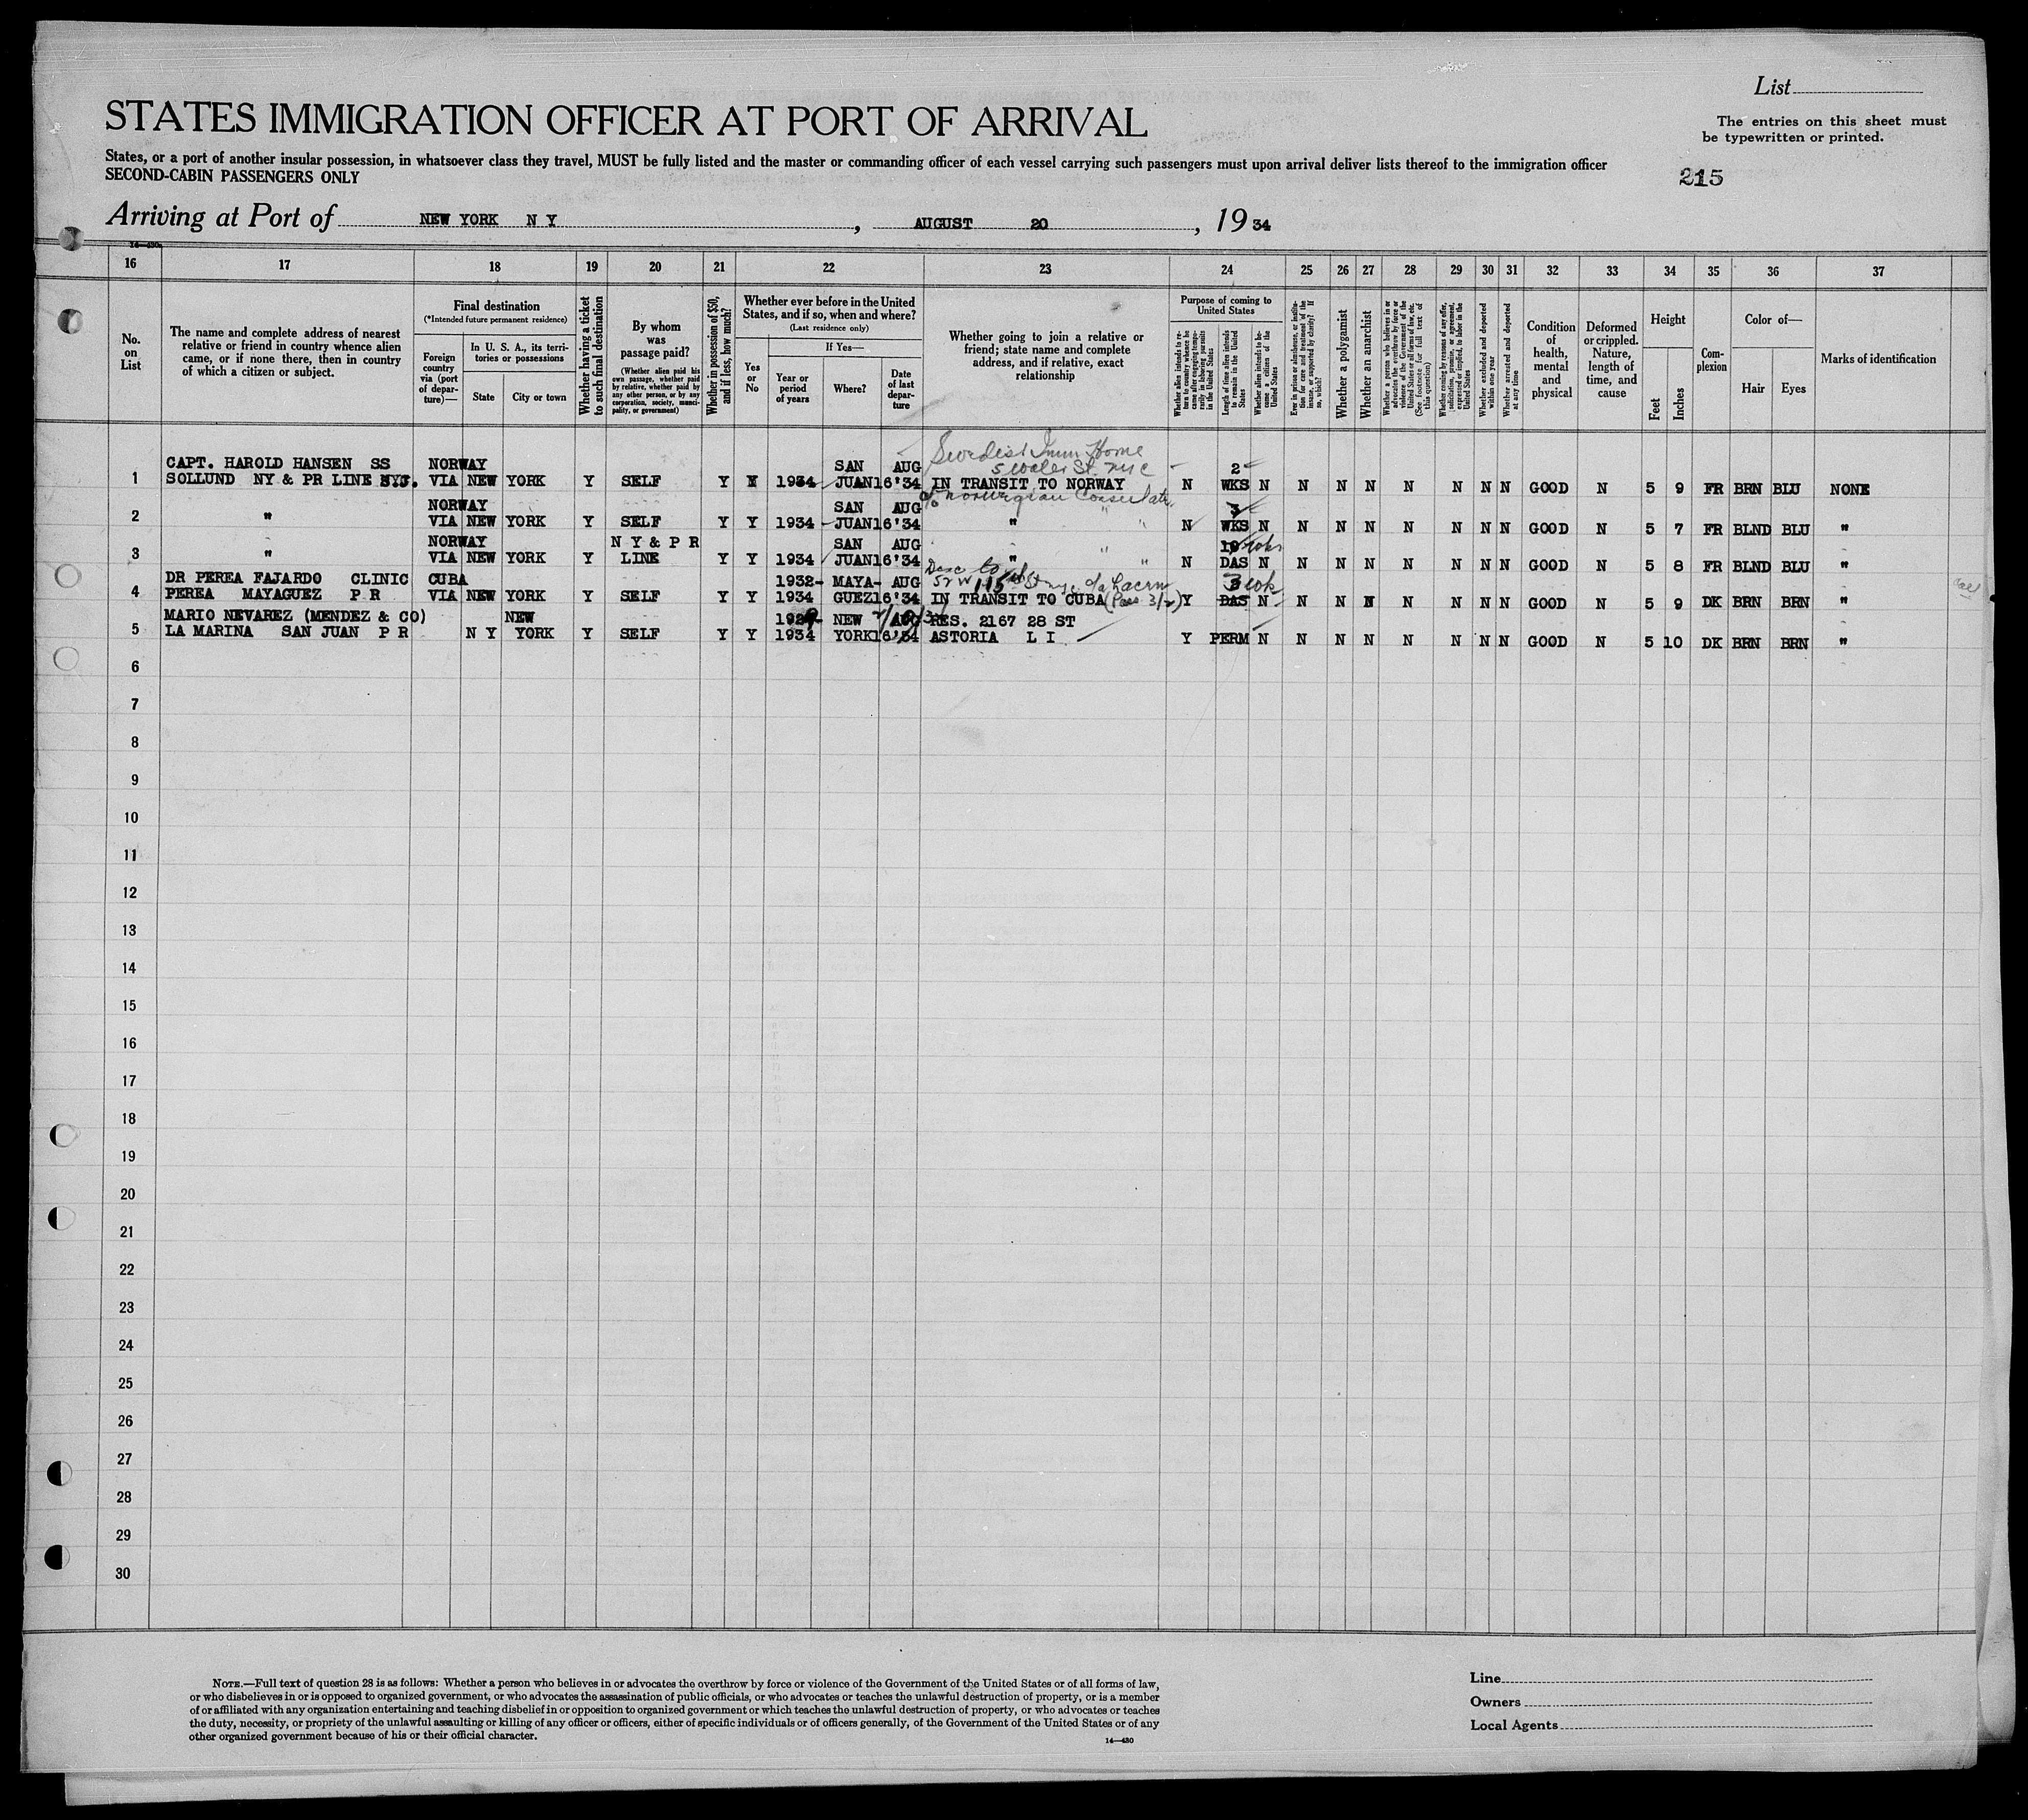 List
STATES IMMIGRATION OFFICER AT PORT OF ARRIVAL
The entries on this sheet must
be typewritten or printed.
States, or a port of another insular possession, in whatsoever class they travel, MUST be fully listed and the master or commanding officer of each vessel carrying such passengers must upon arrival deliver lists thereof to the immigration officer
SECOND-CABIN PASSENGERS ONLY
215
Arriving at Port of NEW YORK N Y, AUGUST 20, 1934
14-430
16 17 18 19 20 21 22 23 24 25 26 27 28 29 30 31 32 33 34 35 36 37
No. on List
The name and complete address of nearest relative or friend in country whence alien came, or if none there, then in country of which a citizen or subject.
Final destination
(*Intended future permanent residence)
Foreign country via (port of departure)—
In U. S. A., its territories or possessions
State
City or town
Whether having a ticket to such final destination
By whom was passage paid?
(Whether alien paid his own passage, whether paid by relative, whether paid by any other person, or by any corporation, society, municipality, or government)
Whether in possession of $50, and if less, how much?
Whether ever before in the United States, and if so, when and where?
(Last residence only)
Yes or No
If Yes—
Year or period of years
Where?
Date of last departure
Whether going to join a relative or friend; state name and complete address, and if relative, exact relationship
Purpose of coming to United States
Whether alien intends to return to country whence he came after engaging temporarily in laboring pursuits in the United States
Length of time alien intends to remain in the United States
Whether alien intends to become a citizen of the United States
Ever in prison or almshouse, or institution for care and treatment of the insane, or supported by charity? If so, which?
Whether a polygamist
Whether an anarchist
Whether a person who believes in or advocates the overthrow by force or violence of the Government of the United States or all forms of law, etc. (See footnote for full text of this question)
Whether coming by reason of any offer, solicitation, promise, or agreement, expressed or implied, to labor in the United States
Whether excluded and deported within one year
Whether arrested and deported at any time
Condition of health, mental and physical
Deformed or crippled. Nature, length of time, and cause
Height
Feet
Inches
Complexion
Color of—
Hair
Eyes
Marks of identification
Swedish Imm Home
CAPT. HAROLD HANSEN SS NORWAY SAN AUG 5 Water St. NYC 2
1 SOLLUND NY & PR LINE NYC. VIA NEW YORK Y SELF Y Y 1934 JUAN 16'34 IN TRANSIT TO NORWAY N WKS N N N N N N N N GOOD N 5 9 FR BRN BLU NONE
NORWAY SAN AUG c/o Norwegian Consulate 3
2 " VIA NEW YORK Y SELF Y Y 1934 JUAN 16'34 " " N WKS N N N N N N N N GOOD N 5 7 FR BLND BLU "
NORWAY N Y & P R SAN AUG 10 wks
3 " VIA NEW YORK Y LINE Y Y 1934 JUAN 16'34 " " " N DAS N N N N N N N N GOOD N 5 8 FR BLND BLU "
DR PEREA FAJARDO CLINIC CUBA 1932- MAYA- AUG 52 W 115th St nyc c/o 3 wk
4 PEREA MAYAGUEZ P R VIA NEW YORK Y SELF Y Y 1934 GUEZ 16'34 IN TRANSIT TO CUBA Y DAS N N N N N N N N GOOD N 5 9 DK BRN BRN "
MARIO NEVAREZ (MENDEZ & CO) NEW 1929- NEW AUG RES. 2167 28 ST
5 LA MARINA SAN JUAN P R N Y YORK Y SELF Y Y 1934 YORK 16'34 ASTORIA L I Y PERM N N N N N N N N GOOD N 5 10 DK BRN BRN "
6
7
8
9
10
11
12
13
14
15
16
17
18
19
20
21
22
23
24
25
26
27
28
29
30
NOTE.—Full text of question 28 is as follows: Whether a person who believes in or advocates the overthrow by force or violence of the Government of the United States or of all forms of law,
or who disbelieves in or is opposed to organized government, or who advocates the assassination of public officials, or who advocates or teaches the unlawful destruction of property, or is a member
of or affiliated with any organization entertaining and teaching disbelief in or opposition to organized government or which teaches the unlawful destruction of property, or who advocates or teaches
the duty, necessity, or propriety of the unlawful assaulting or killing of any officer or officers, either of specific individuals or of officers generally, of the Government of the United States or of any
other organized government because of his or their official character.
14—430
Line
Owners
Local Agents